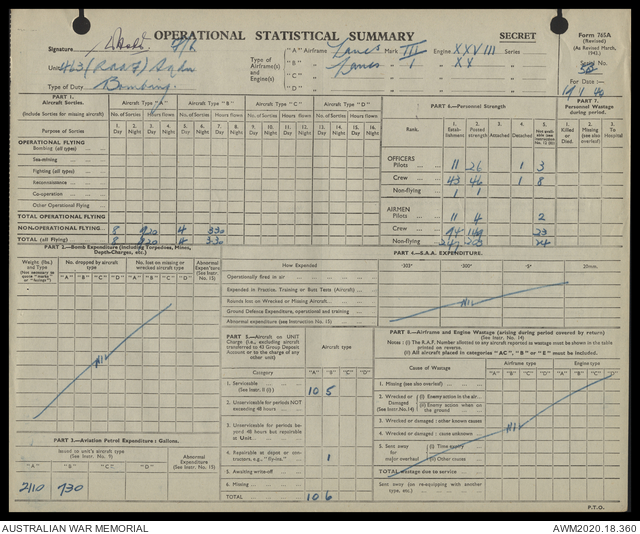 OPERATIONAL STATISTICAL SUMMARY
SECRET
Form 765A
(Revised)
(As Revised March, 1942.)
Signature
Unit 463 (RAAF) Sqdn
Type of Duty Bombing
Type of Airframe(s) and Engine(s)
"A" Airframe Lancs Mark III Engine XXVIII Series
"B" Lancs I XX
"C"
"D"
Serial No.
58
For Date :—
PART 1.
Aircraft Sorties.
(Include Sorties for missing aircraft)
Purpose of Sorties
Aircraft Type "A" Aircraft Type "B" Aircraft Type "C" Aircraft Type "D"
No. of Sorties Hours flown No. of Sorties Hours flown No. of Sorties Hours flown No. of Sorties Hours flown
1. 2. 3. 4. 5. 6. 7. 8. 9. 10. 11. 12. 13. 14. 15. 16.
Day Night Day Night Day Night Day Night Day Night Day Night Day Night Day Night
OPERATIONAL FLYING
Bombing (all types)
Sea-mining
Fighting (all types)
Reconnaissance
Co-operation
Other Operational Flying
TOTAL OPERATIONAL FLYING
NON-OPERATIONAL FLYING 8 920 4 330
TOTAL (all Flying) 8 920 4 330
PART 6.—Personnel Strength
Rank.
1. Establishment
2. Posted strength
3. Attached
4. Detached
5. Not available (see Instruction No. 12 (B))
OFFICERS
Pilots 11 26 1 3
Crew 43 46 1 8
Non-flying 1 1
AIRMEN
Pilots 11 4 2
Crew 94 149 23
Non-flying 24
PART 7.
Personnel Wastage during period.
1. Killed or Died.
2. Missing (see also overleaf)
3. To Hospital
PART 2.—Bomb Expenditure (including Torpedoes, Mines, Depth-Charges, etc.)
Weight (lbs.) and Type
(Not necessary to quote "marks" or "fusings")
No. dropped by aircraft type
"A" "B" "C" "D"
No. lost on missing or wrecked aircraft type
"A" "B" "C" "D"
Abnormal Expen'ture (See Instr. No. 15)
Nil
PART 4.—S.A.A. EXPENDITURE.
How Expended
·303" ·300" ·5" 20mm.
Operationally fired in air
Expended in Practice, Training or Butt Tests (Aircraft)
Rounds lost on Wrecked or Missing Aircraft
Ground Defence Expenditure, operational and training
Abnormal expenditure (see Instruction No. 15)
Nil
PART 5.—Aircraft on UNIT Charge (i.e., excluding aircraft transferred to 43 Group Deposit Account or to the charge of any other unit)
Aircraft type
Category "A" "B" "C" "D"
1. Serviceable (See Instr. 11 (i)) 10 5
2. Unserviceable for periods NOT exceeding 48 hours
3. Unserviceable for periods beyond 48 hours but repairable at Unit.
4. Repairable at depot or contractors, e.g., "fly-ins." 1
5. Awaiting write-off
6. Missing
TOTAL 10 6
PART 8.—Airframe and Engine Wastage (arising during period covered by return)
(See Instr. No. 14)
Notes : (i) The R.A.F. Number allotted to any aircraft reported as wastage must be shown in the table printed on reverse.
(ii) All aircraft placed in categories "AC", "B" or "E" must be included.
Cause of Wastage
Airframe type
"A" "B" "C" "D"
Engine type
"A" "B" "C" "D"
1. Missing (see also overleaf)
2. Wrecked or Damaged (See Instr. No.14)
(i) Enemy action in the air
(ii) Enemy action when on the ground
3. Wrecked or damaged : other known causes
4. Wrecked or damaged : cause unknown
5. Sent away for major overhaul
(i) Time expiry
(ii) Other causes
TOTAL wastage due to service
Sent away (on re-equipping with another type, etc.)
Nil
PART 3.—Aviation Petrol Expenditure : Gallons.
Issued to unit's aircraft type (See Instr. No. 9)
"A" "B" "C" "D"
Abnormal Expenditure (See Instr. No. 15)
2110 730
P.T.O.
AUSTRALIAN WAR MEMORIAL
AWM2020.18.360